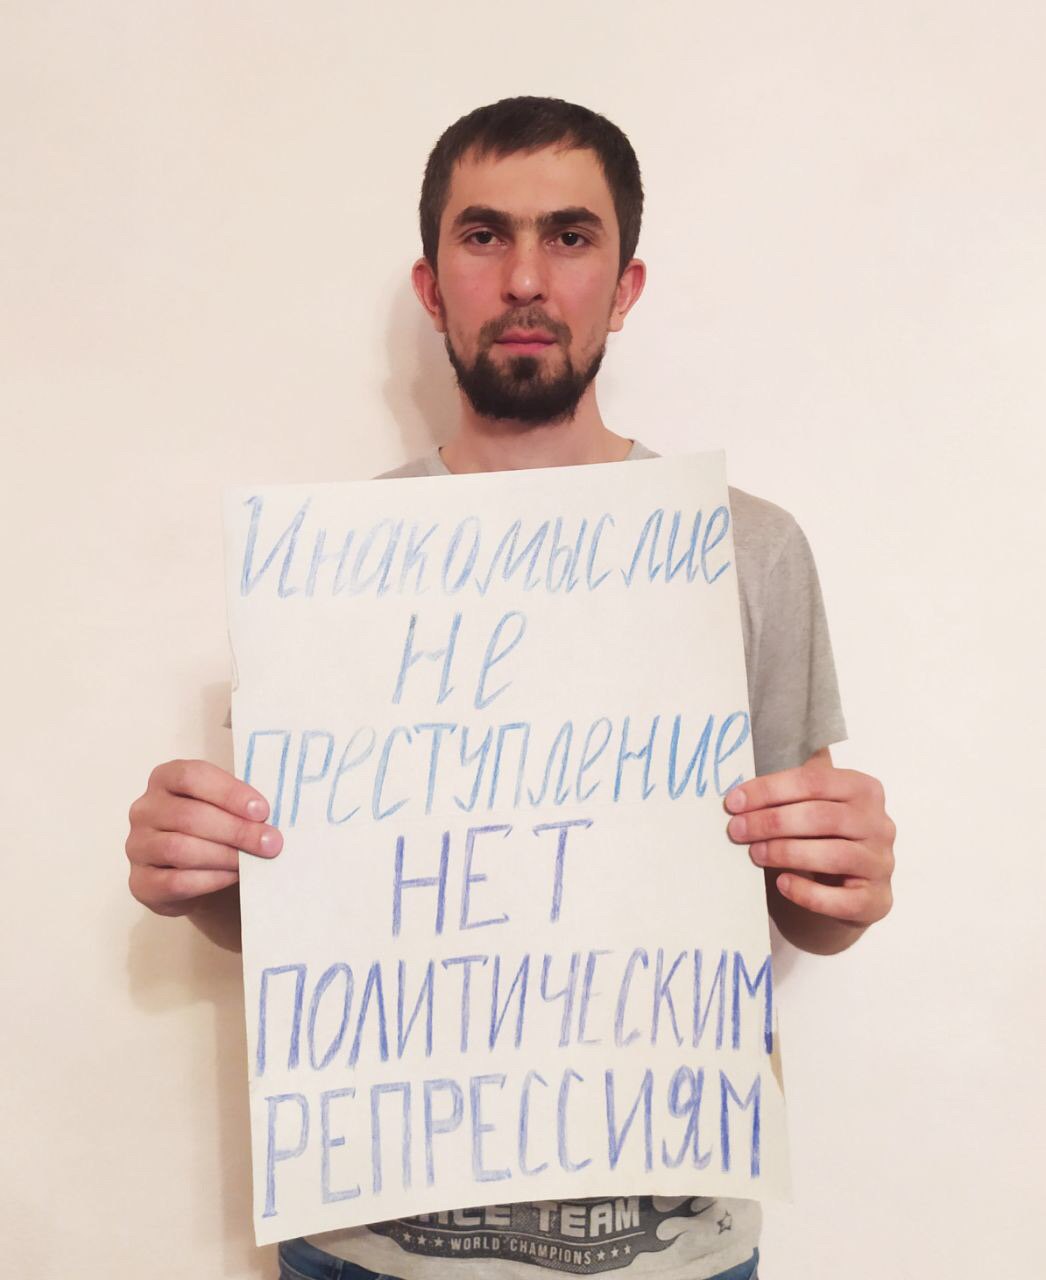 Инакомыслие
не
преступление
НЕТ
ПОЛИТИЧЕСКИМ
РЕПРЕССИЯМ
TEAM
★★★WORLD CHAMPIONS★★★